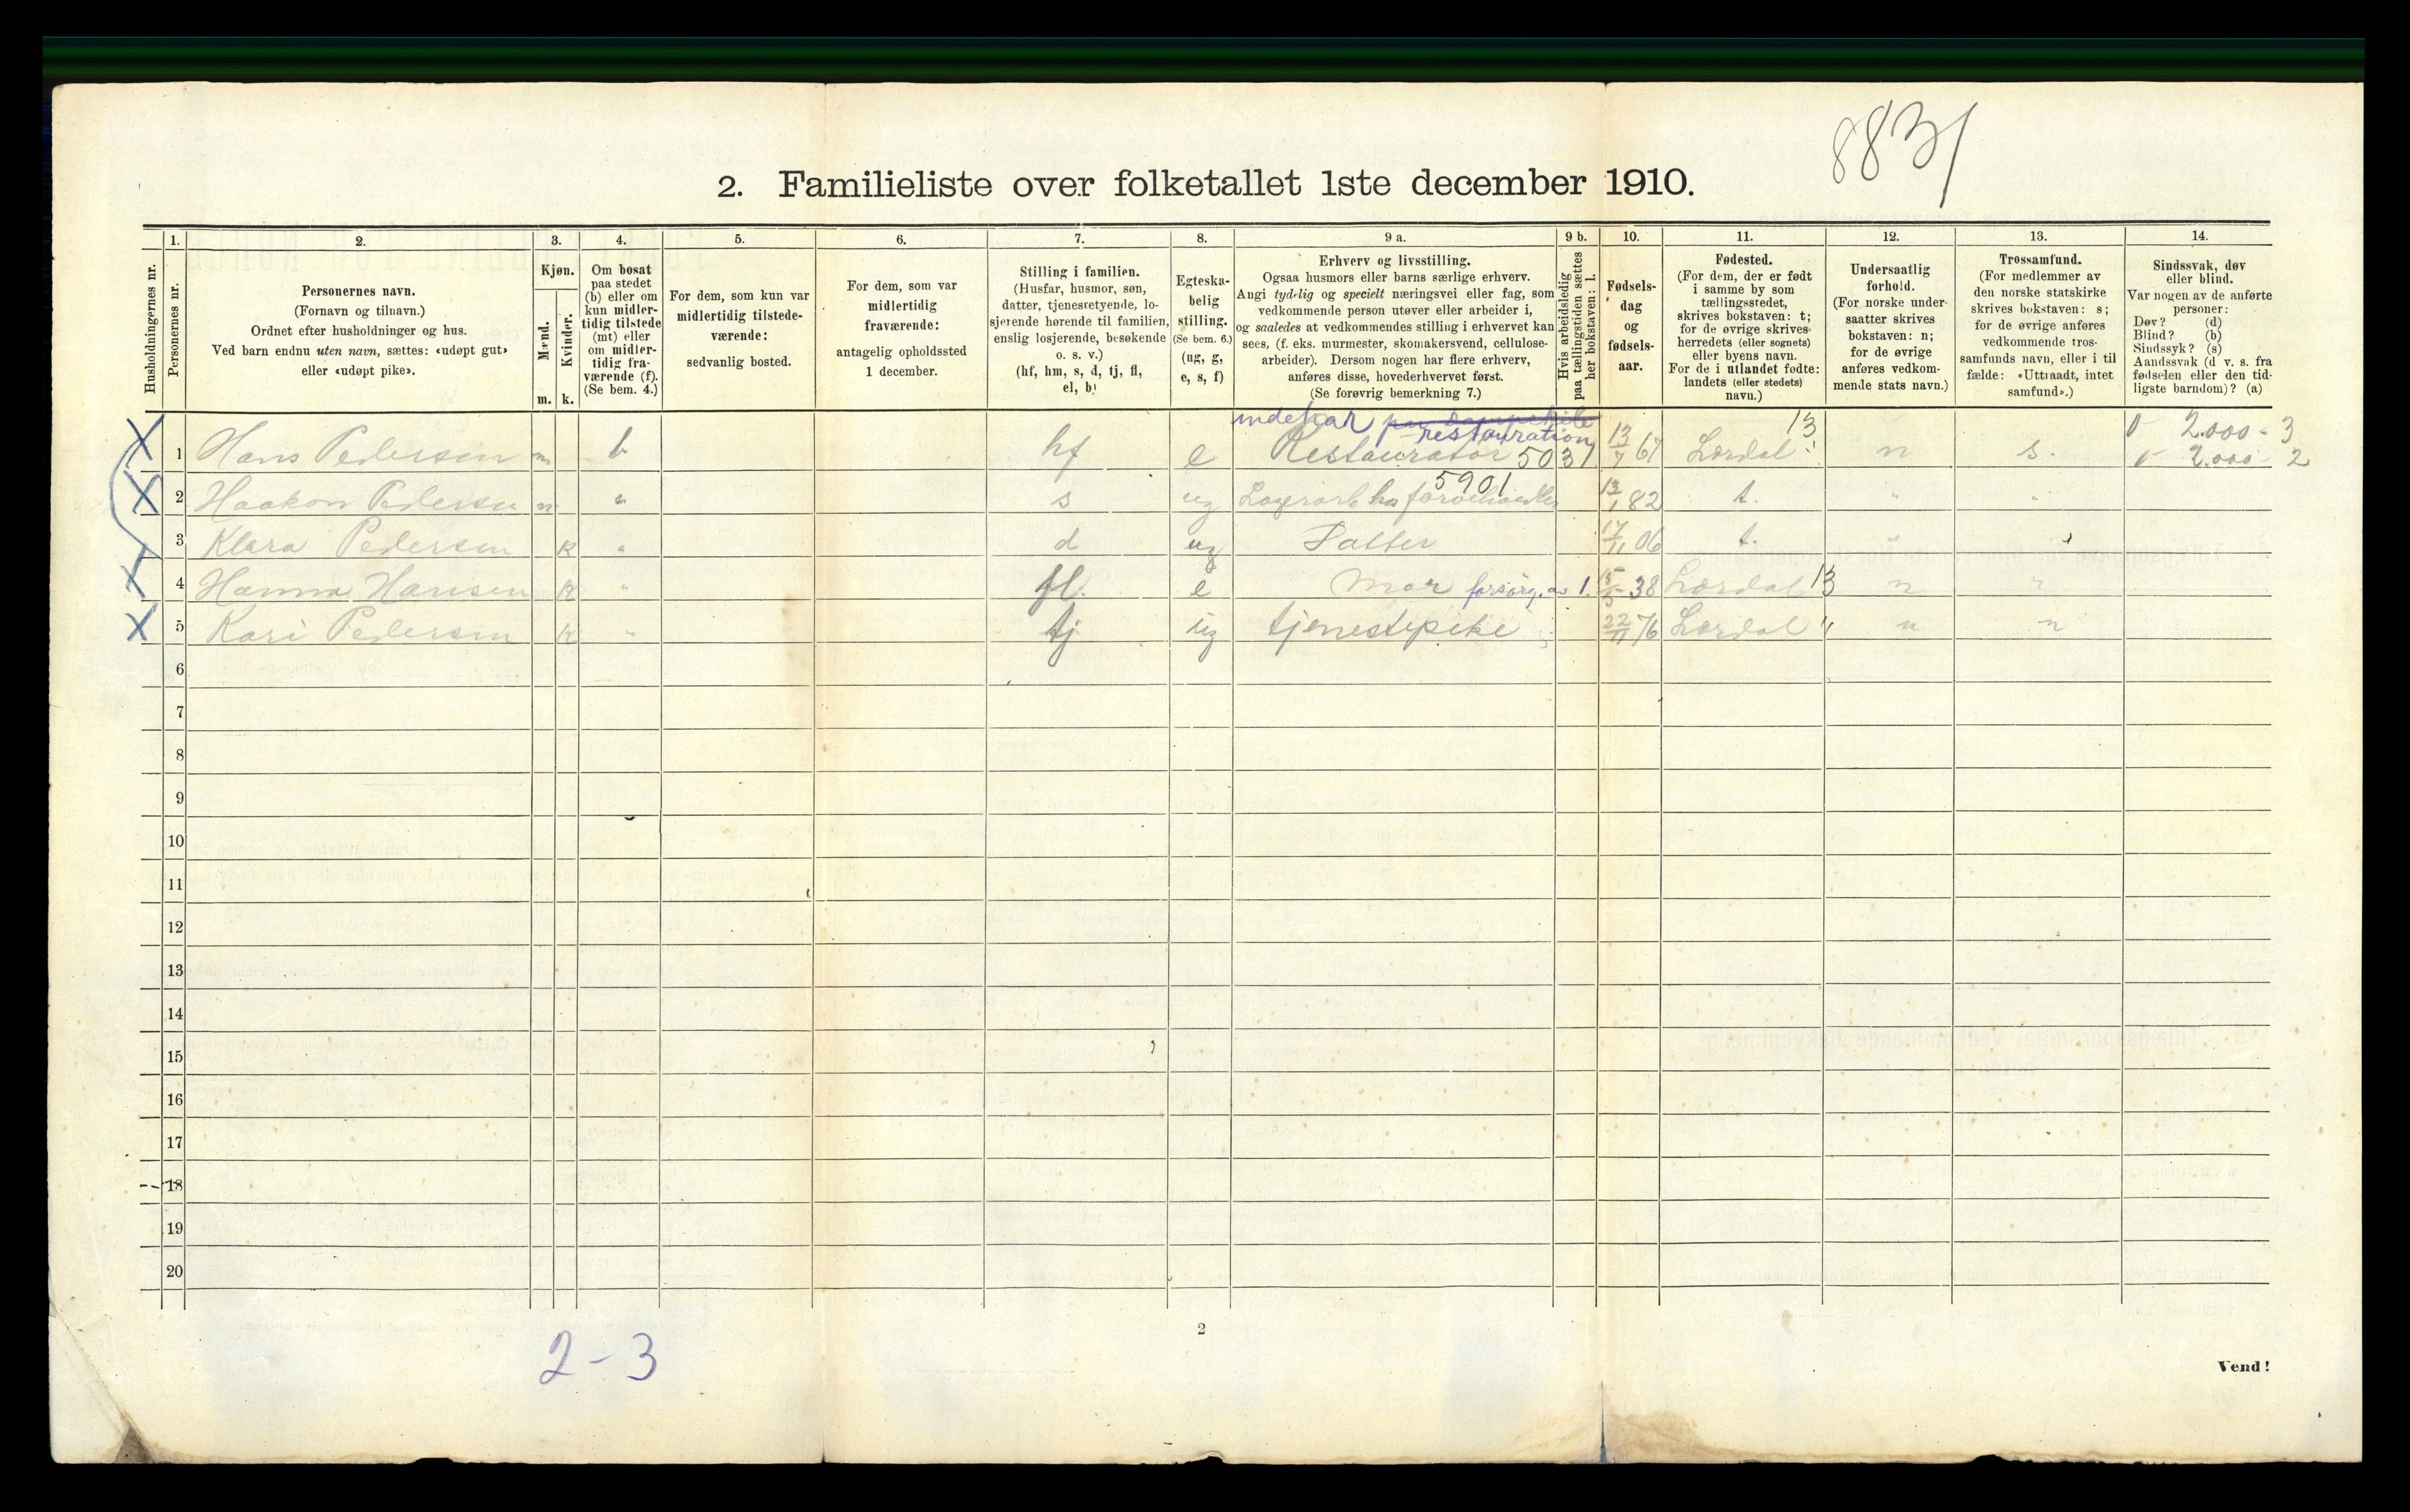 8831
2. Familieliste over folketallet 1ste december 1910.
Husholdningernes nr.
1.
Personernes nr.
2.
Personernes navn.
(Fornavn og tilnavn.)
Ordnet efter husholdninger og hus.
Ved barn endnu uten navn, sættes: «udøpt gut»
eller «udøpt pike».
3.
Kjøn.
Mænd.
Kvinder.
m. k.
4.
Om bosat
paa stedet
(b) eller om
kun midler-
tidig tilstede
(mt) eller
om midler-
tidig fra-
værende (f).
(Se bem. 4.)
5.
For dem, som kun var
midlertidig tilstede-
værende:
sedvanlig bosted.
6.
For dem, som var
midlertidig
fraværende:
antagelig opholdssted
1 december.
7.
Stilling i familien.
(Husfar, husmor, søn,
datter, tjenestetyende, lo-
sjerende hørende til familien,
enslig losjerende, besøkende
o. s. v.)
(hf, hm, s, d, tj, fl,
el, b)
8.
Egteska-
belig
stilling.
(Se bem. 6.)
(ug, g,
e, s, f)
9 a.
Erhverv og livsstilling.
Ogsaa husmors eller barns særlige erhverv.
Angi tydelig og specielt næringsvei eller fag, som
vedkommende person utøver eller arbeider i,
og saaledes at vedkommendes stilling i erhvervet kan
sees, (f. eks. murmester, skomakersvend, cellulose-
arbeider). Dersom nogen har flere erhverv,
anføres disse, hovederhvervet først.
(Se forøvrig bemerkning 7.)
9 b.
Hvis arbeidsledig
paa tællingstiden sættes
her bokstaven: l.
10.
Fødsels-
dag
og
fødsels-
aar.
11.
Fødested.
(For dem, der er født
i samme by som
tællingsstedet,
skrives bokstaven: t;
for de øvrige skrives
herredets (eller sognets)
eller byens navn.
For de i utlandet fødte:
landets (eller stedets)
navn.)
12.
Undersaatlig
forhold.
(For norske under-
saatter skrives
bokstaven: n;
for de øvrige
anføres vedkom-
mende stats navn.)
13.
Trossamfund.
(For medlemmer av
den norske statskirke
skrives bokstaven: s;
for de øvrige anføres
vedkommende tros-
samfunds navn, eller i til
fælde: «Uttraadt, intet
samfund».)
14.
Sindssvak, døv
eller blind.
Var nogen av de anførte
personer:
Døv? (d)
Blind? (b)
Sindssyk? (s)
Aandssvak (d v. s. fra
fødselen eller den tid-
ligste barndom)? (a)
indehar
restauration 13 2.000 - 3
1 Hans Pedersen m b hf e Restauratør 5031 13/7 67 Lærdal n s. 2.000 - 2
5901
2 Haakon Pedersen m " s ug Lagerarb hos farvehandler 82 t. " "
3 Klara Pedersen k " d ug Datter 17/11 06 t. "
4 Hanna Hansen k " fl. e Mor forsörg. av 1. 15/5 38 Lærdal 13 n "
5 Kari Pedersen k " tj ug tjenestepike 22/11 76 Lærdal " n "
6
7
8
9
10
11
12
13
14
15
16
17
18
19
20
2-3
2
Vend!